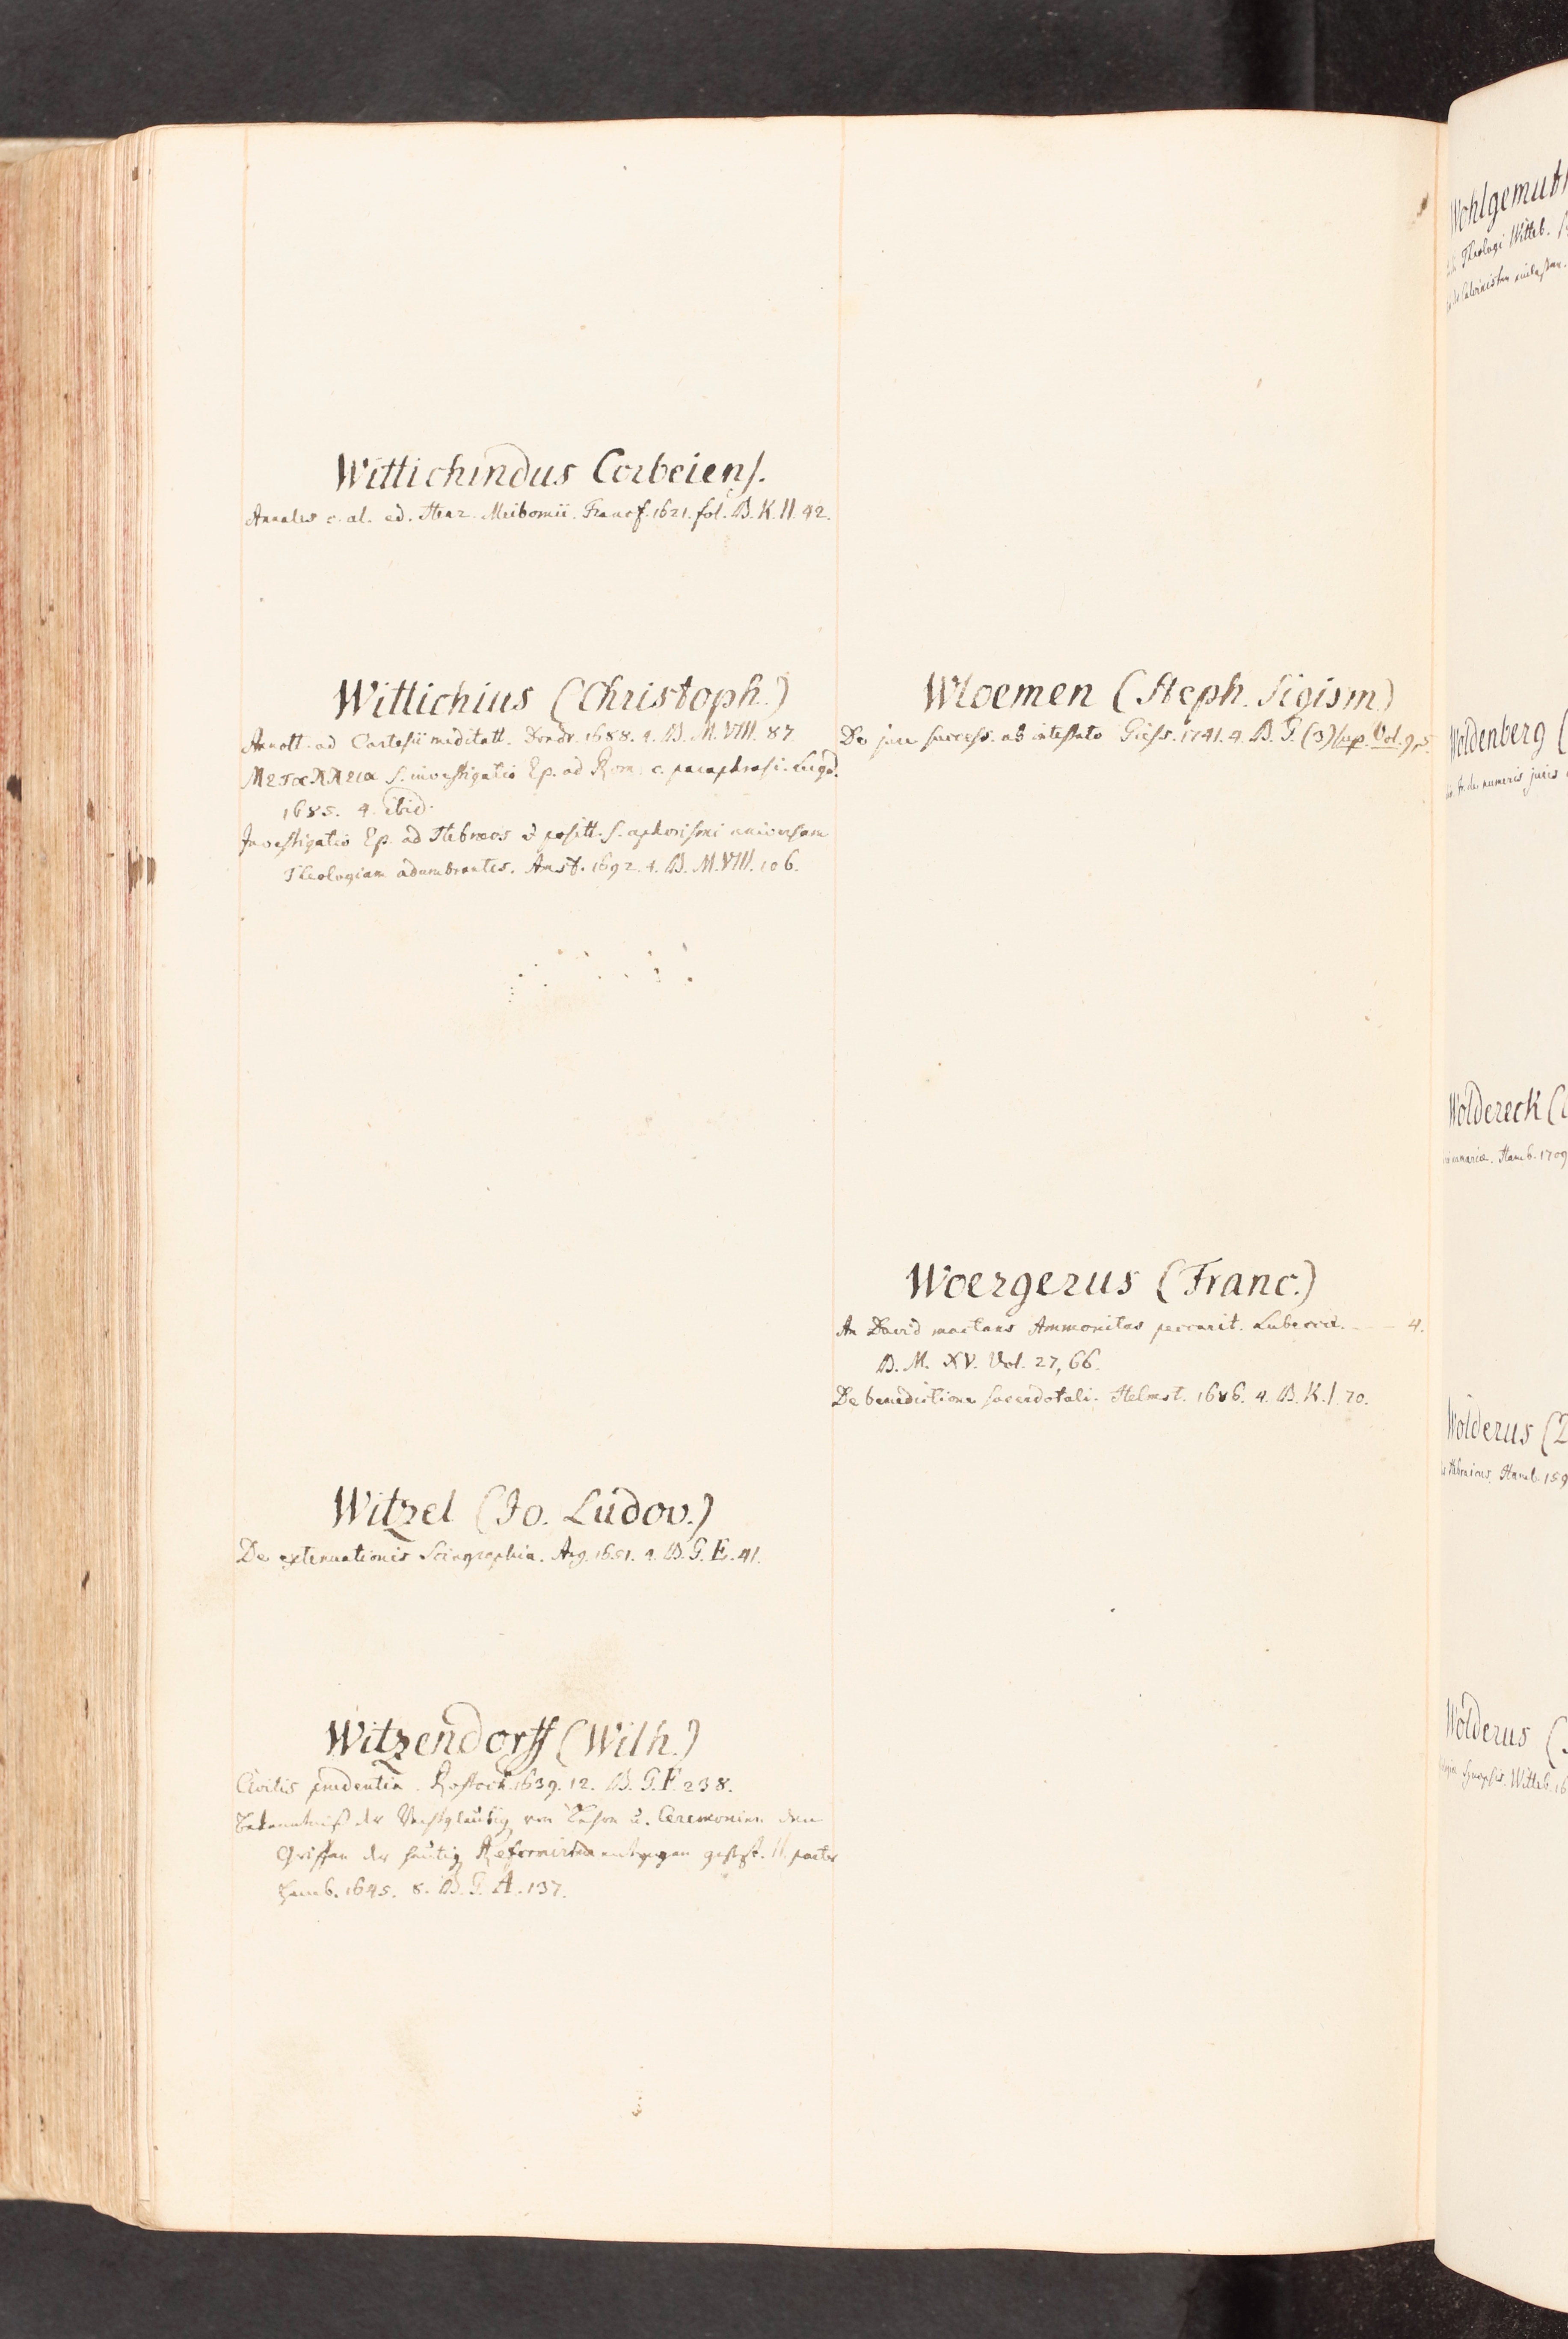 Wittichindus Corbeiens.
Annales c. al. ed. Henr. Meibomii. Francf. 1621. fol. B. K. II. 42.
Wittichius (Christoph.)
Annott. ad Cartesii meditatt. Dordr. 1688. 4. B. M. VIII. 87
s. investigatio Ep. ad Rom. c. paraphrasi. Lugd.
1685. 4. ibid.
Investigatio Ep. ad Hebraeos & positt. s. aphorismi universam
Theologiam adumbrantes. Amst. 1692. 4. B. M. VIII. 106.
Witzel (Jo. Ludov.)
De extenuationis Sciagraphia. Arg. 1651. 4. B. G. E. 41.
Witzendorff (Wilh.)
Civilis prudentia. Rostoch. 1639. 12. B. G. F. 238.
Bekenntniß der von u. Ceremonien den
der heutig Reformirten entgegen gesetzt. II. partes
Hamb. 1645. 8. B. G. A. 137.
Wloemen (Steph. Sigism)
De jure success. ab intestato Giess. 1741. 4. B. G. (3) sup. Vol. 9, 5.
Woergerus (Franc.)
An David mactans Ammonitas peccarit. Lubecae. — — 4.
B. M. XV. Vol. 27, 66.
De benedictione sacerdotali. Helmst. 1686. 4. B. K. I. 70.
Wohlgemuth
Theologi Witteb.
Calvinisten
Woldenberg (
de numeris juris
Woldereck (
Hamb. 1709
Wolderus (
Hamb. 159
Wolderus (
Synopsis. Witteb. 16